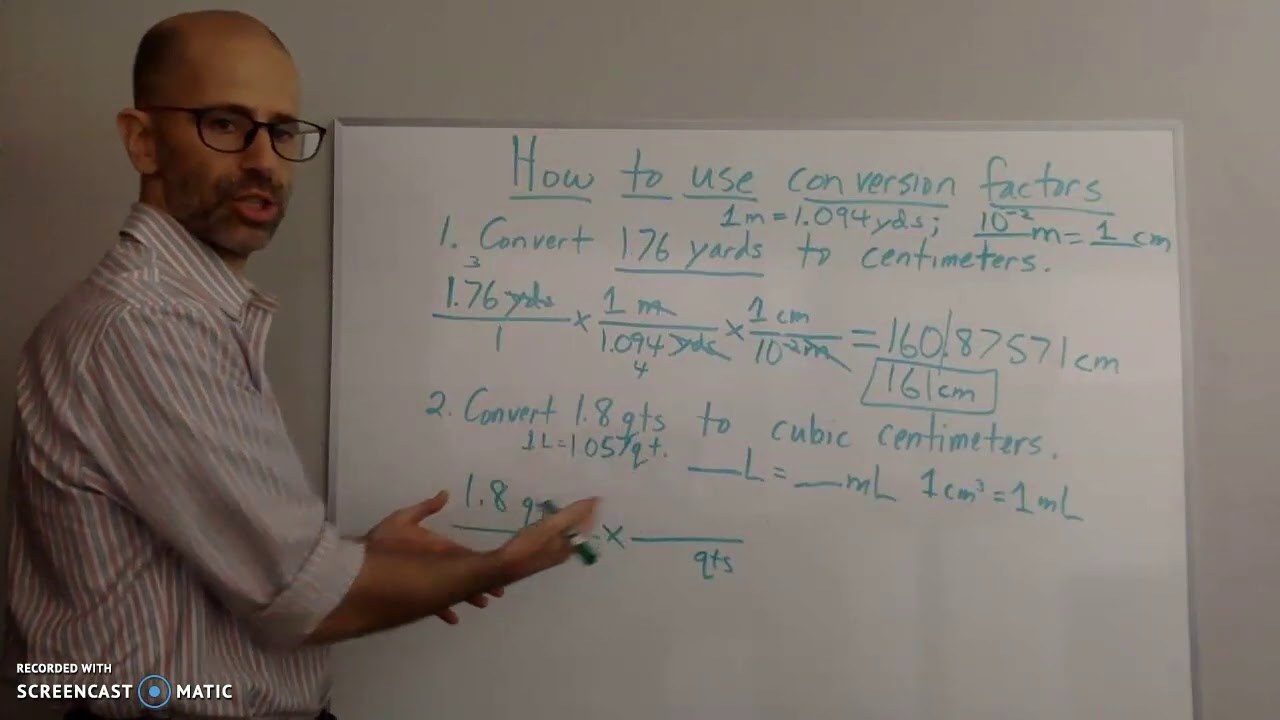 How to use conversion factors
1m = 1.094 yds; 10⁻² m = 1 cm
1. Convert 1.76 yards to centimeters.
3
1.76 yds × 1 m × 1 cm = 160.87571 cm
1 1.094 yds 10⁻² m
4
161 cm
2. Convert 1.8 qts to cubic centimeters.
1L = 1.057 qt. __L = __mL 1cm³ = 1mL
1.8 ×
qts
RECORDED WITH
SCREENCAST MATIC